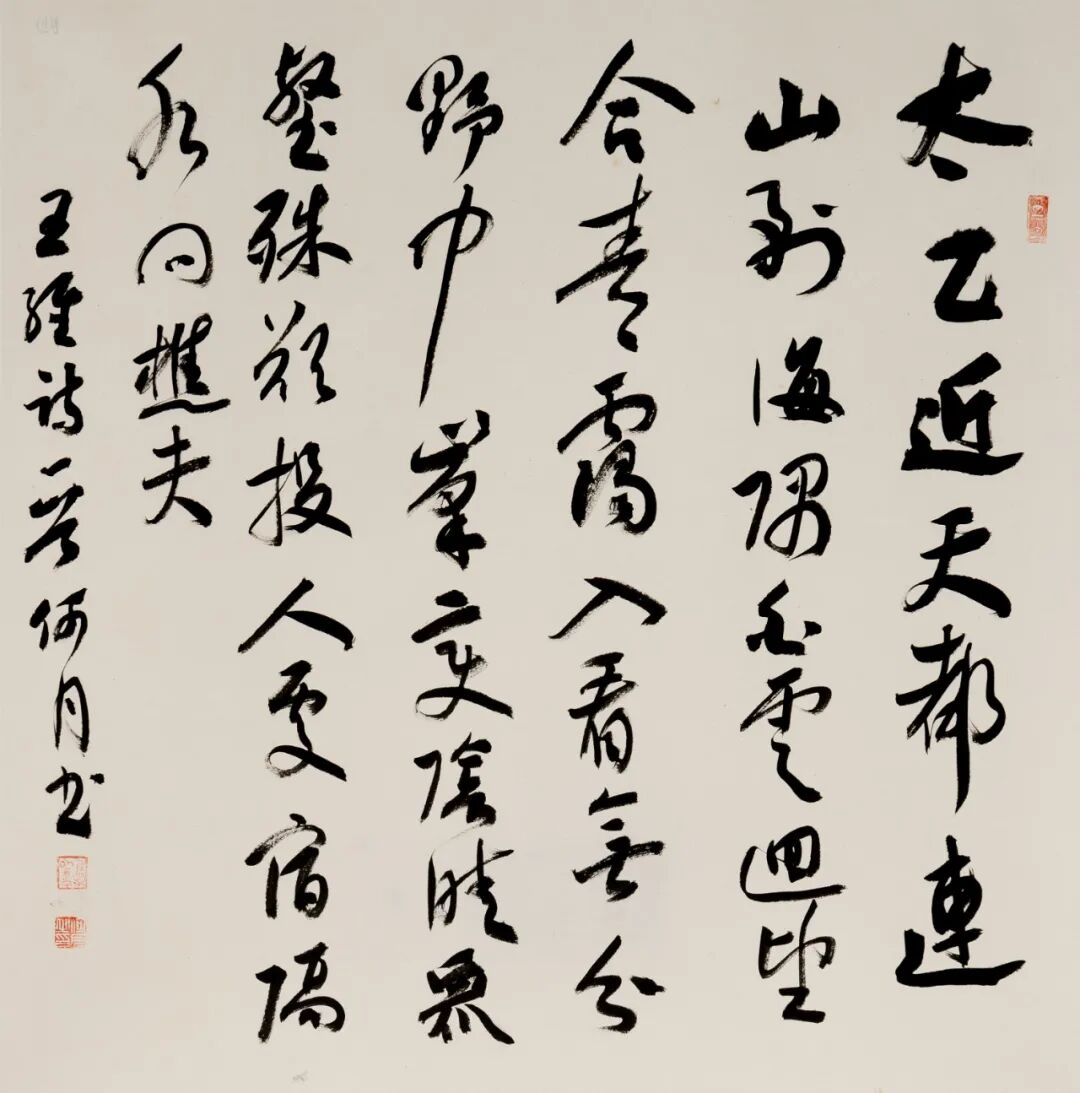 太乙近天都連
山到海隅白雲迴望
合青靄入看無分
野中峯變陰晴眾
壑殊欲投人處宿隔
水問樵夫
王維詩一首何月书